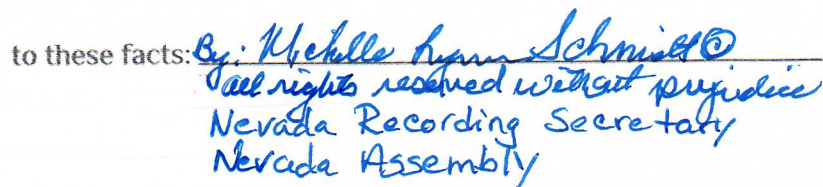 to these facts: By: Michelle Lynn Schmidt©
all rights reserved without prejudice
Nevada Recording Secretary
Nevada Assembly